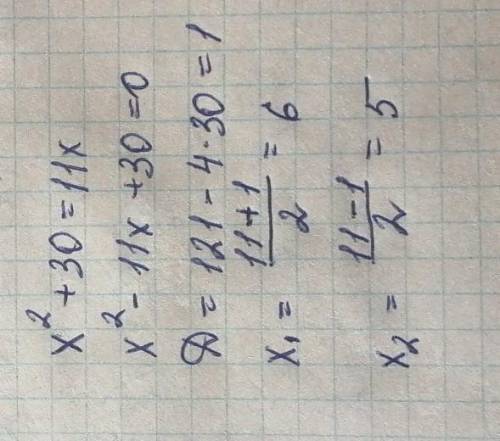 x² + 30 = 11x
x² - 11x + 30 = 0
D = 121 - 4·30 = 1
x₁ = (11+1)/2 = 6
x₂ = (11-1)/2 = 5